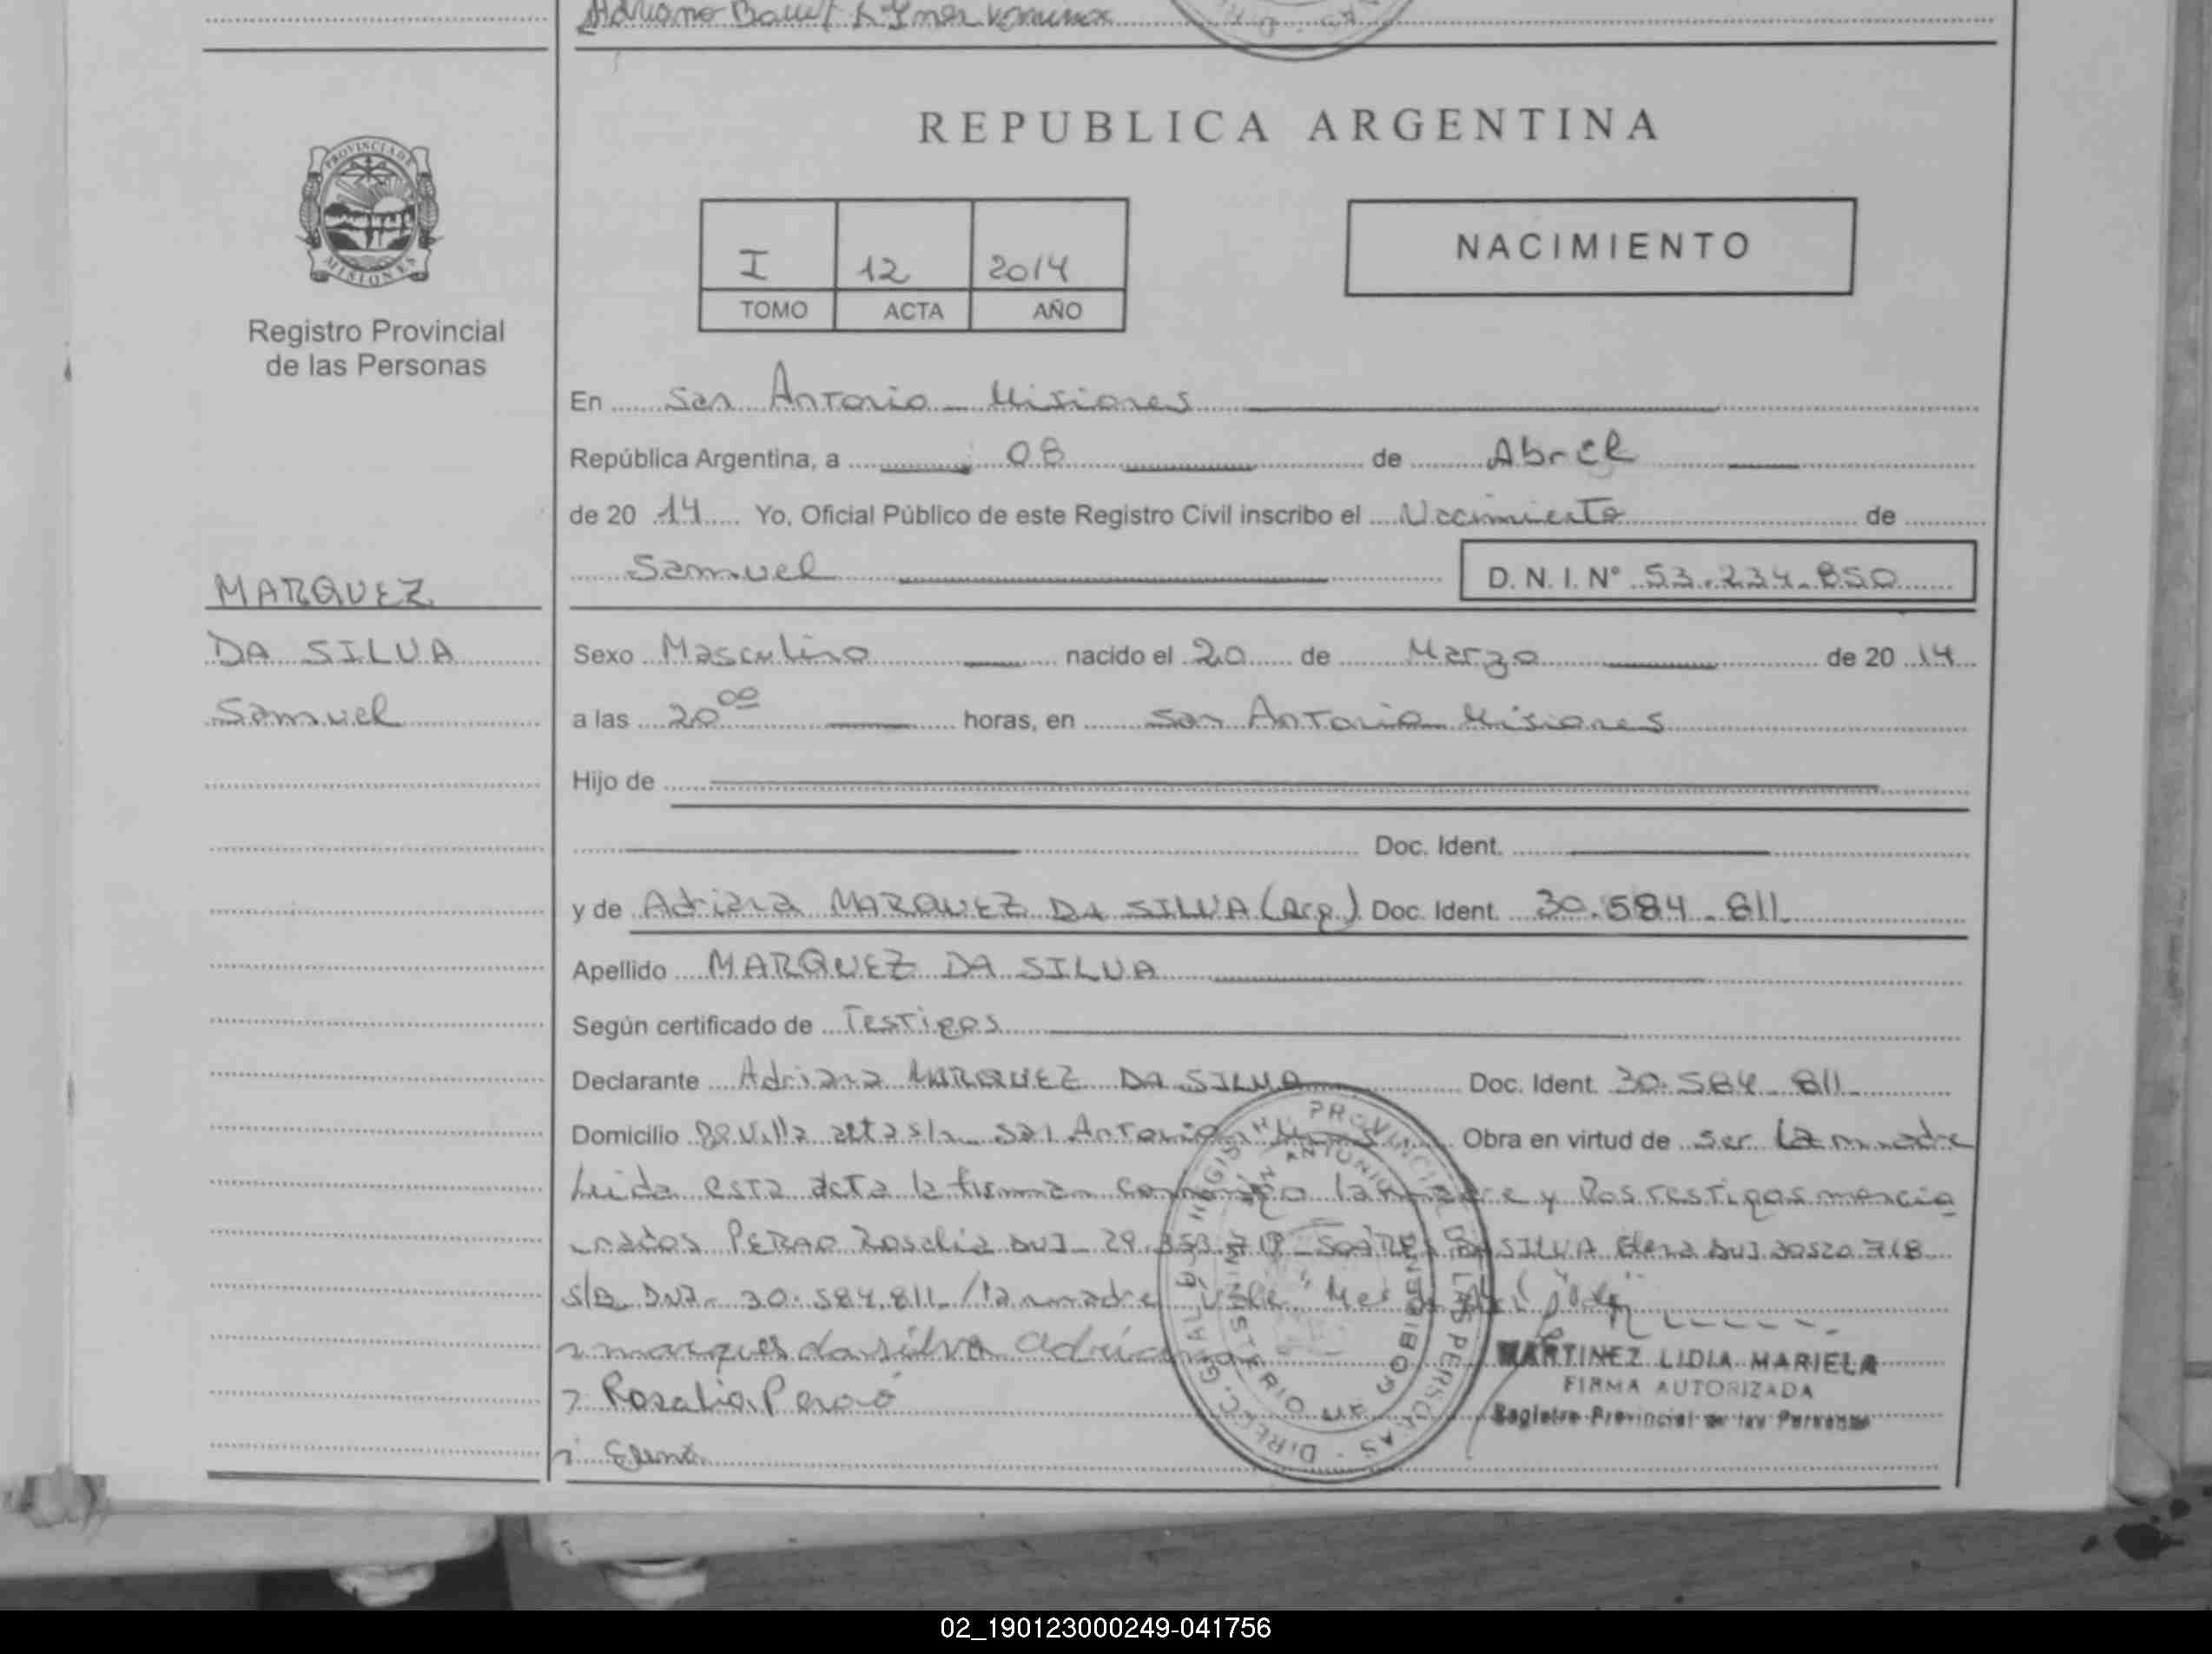 REPUBLICA ARGENTINA
PROVINCIA DE
MISIONES
Registro Provincial
de las Personas
I 12 2014
TOMO ACTA AÑO
NACIMIENTO
En San Antonio - Misiones
República Argentina, a 08 de Abril
de 20 14 Yo, Oficial Público de este Registro Civil inscribo el Nacimiento de
Samuel D. N. I. Nº 53.234.850
MARQUEZ
DA SILVA
Samuel
Sexo Masculino nacido el 20 de Marzo de 20 14
a las 20 00 horas, en San Antonio Misiones
Hijo de
Doc. Ident.
y de Adriana MARQUEZ DA SILVA (Arg.) Doc. Ident. 30.584.811
Apellido MARQUEZ DA SILVA
Según certificado de Testigos
Declarante Adriana MARQUEZ DA SILVA Doc. Ident. 30.584.811
Domicilio San Antonio Obra en virtud de ser la madre
Leida esta acta la firman conmigo la madre y los testigos mencio
nados PERAO Rosalia DNI 29. SILVA Elena DNI 30520718
DNI 30.584.811 / la madre
marques da silva
Rosalia Perao
Elena
MARTINEZ LIDIA MARIELA
FIRMA AUTORIZADA
Registro Provincial de las Personas
02_190123000249-041756